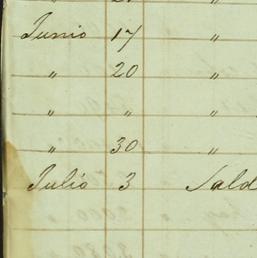 Junio 17 "
" 20 "
" " "
" 30 "
Julio 3 Sald